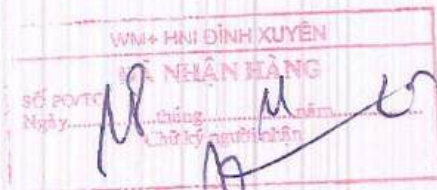 WM+ HNI ĐÌNH XUYÊN
ĐÃ NHẬN HÀNG
SỐ PO/TO
Ngày..........tháng..........năm..........
Chữ ký người nhận